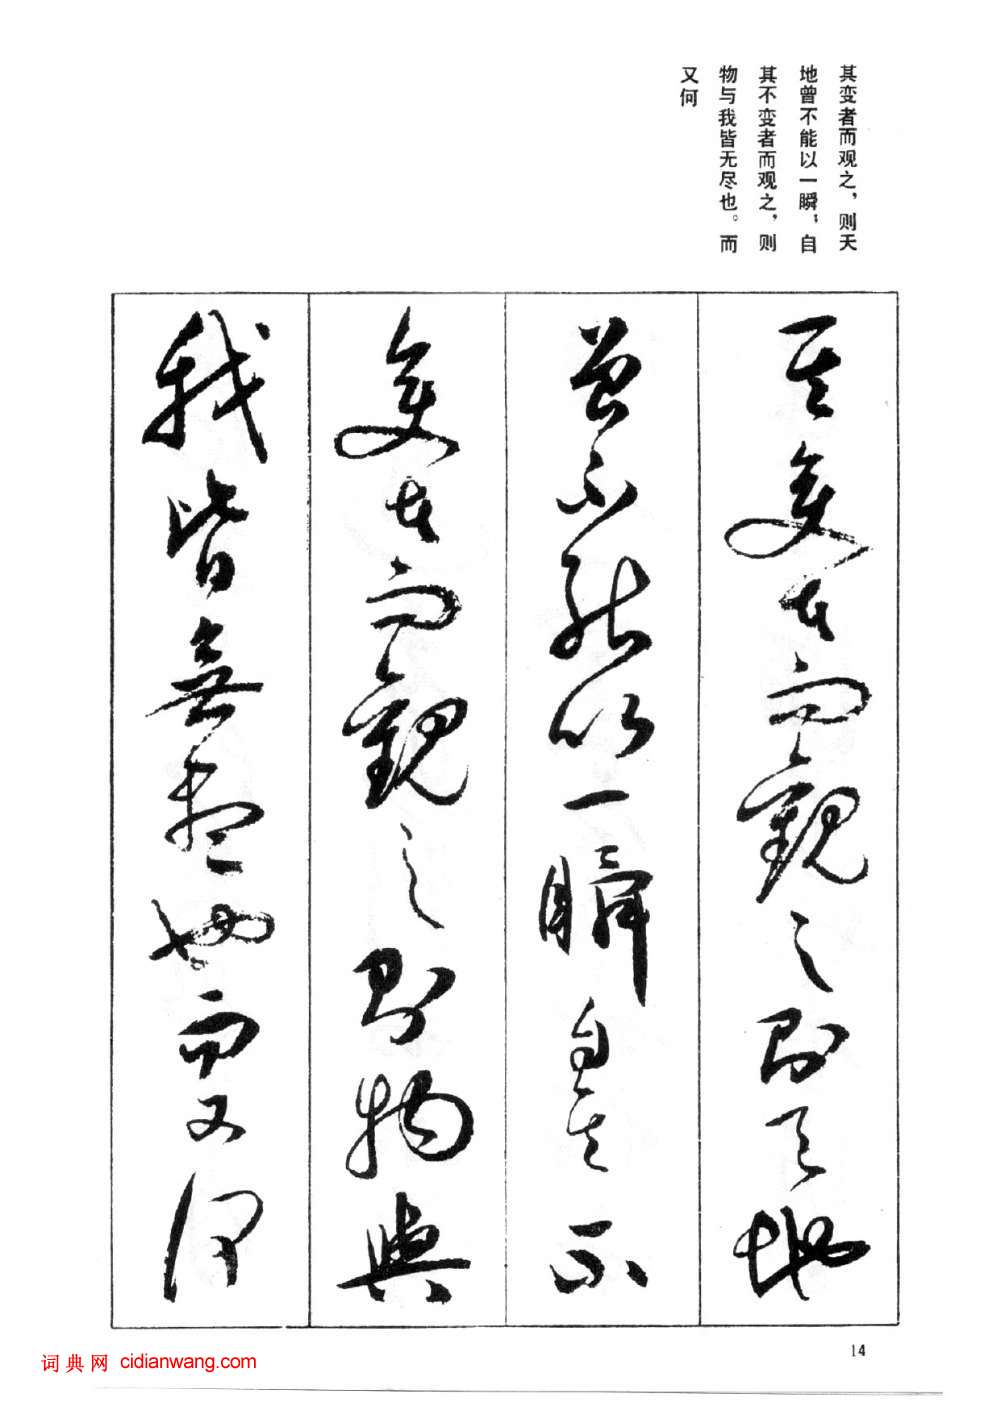 其变者而观之，则天
地曾不能以一瞬；自
其不变者而观之，则
物与我皆无尽也。而
又何
其變者而觀之則天地
曾不能以一瞬自其不
變者而觀之則物與
我皆無盡也而又何
14
词典网 cidianwang.com